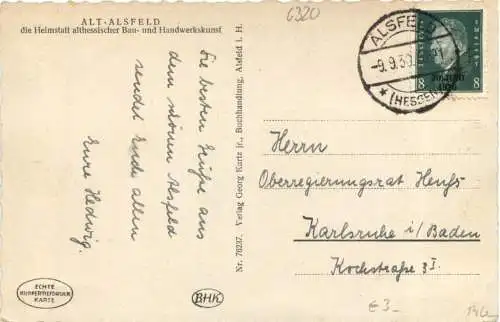 ALT-ALSFELD
die Heimstatt althessischer Bau- und Handwerkskunst
6320
ALSFELD
-9.9.30
* (HESSEN)
8 8
30. JUNI
1930
Die besten Grüße aus
dem schönen Alsfeld
sendet Ende allen
Eure Hedwig.
Nr. 76297. Verlag Georg Kartz jr., Buchhandlung, Alsfeld i. H.
Herrn
Oberregierungsrat Heuß
Karlsruhe i/Baden
Kochstraße 3 I.
ECHTE
KUPFERTIEFDRUCK
KARTE
BHK
€ 3_